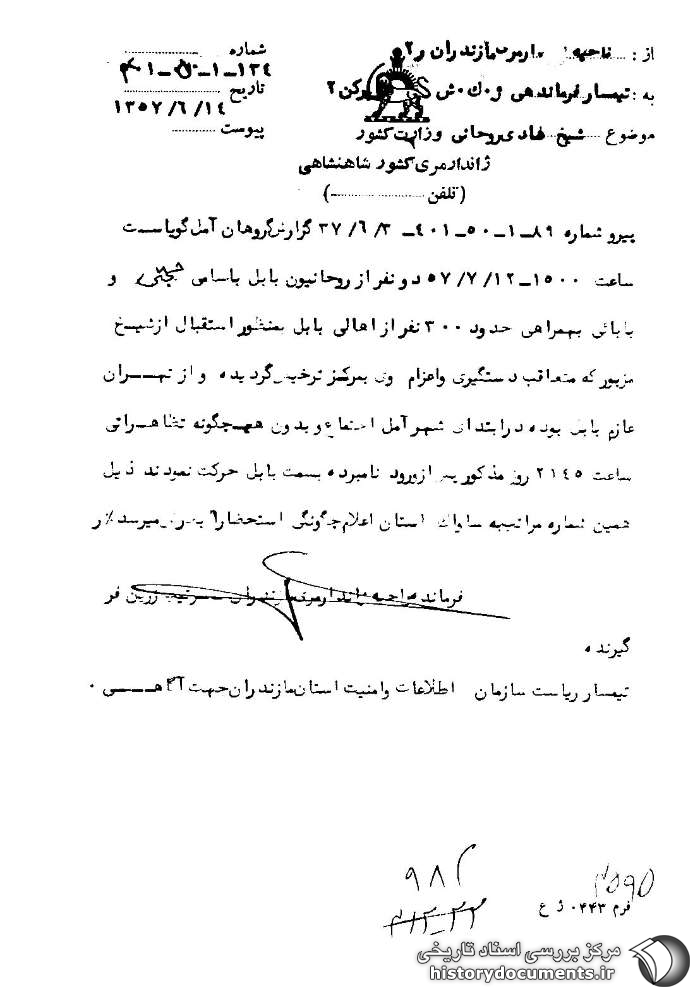 از : ناحیه ژاندارمری مازندران ر۲
شماره
۱۳۴–۱–۵۰–۴۰۱
به : تیمسار فرماندهی ژ۰ک۰ش رکن ۲
تاریخ
۱۳۵۷/۶/۱۴
موضوع شیخ هادی روحانی
پیوست
وزارت کشور
ژاندارمری کشور شاهنشاهی
(تلفن )
پیرو شماره ۸۹–۱–۵۰–۴۰۱– ۳۷/۶/۳ گزارش گروهان آمل گویاست
ساعت ۱۵۰۰–۵۷/۷/۱۲ دو نفر از روحانیون بابل باسامی و
بابائی بهمراهی حدود ۳۰۰ نفر از اهالی بابل بمنظور استقبال از شیخ
مزبور که متعاقب دستگیری و اعزام وی بمرکز ترخیص گردیده و از تهران
عازم بابل بوده در ابتدای شهر آمل اجتماع و بدون هیچگونه تظاهراتی
ساعت ۲۱۴۵ روز مذکور پس از ورود نامبرده بسمت بابل حرکت نمودند ذیل
همین شماره مراتب به ساواک استان اعلام چگونگی استحضارا" بعرض میرسد٪ر
فرمانده ناحیه ژاندارمری مازندران سرتیپ زرین فر
گیرنده
تیمسار ریاست سازمان اطلاعات و امنیت استان مازندران جهت آگاهی ۰
۹۸۲
فرم ۰۴۴۳ ژ ع
مرکز بررسی اسناد تاریخی
historydocuments.ir